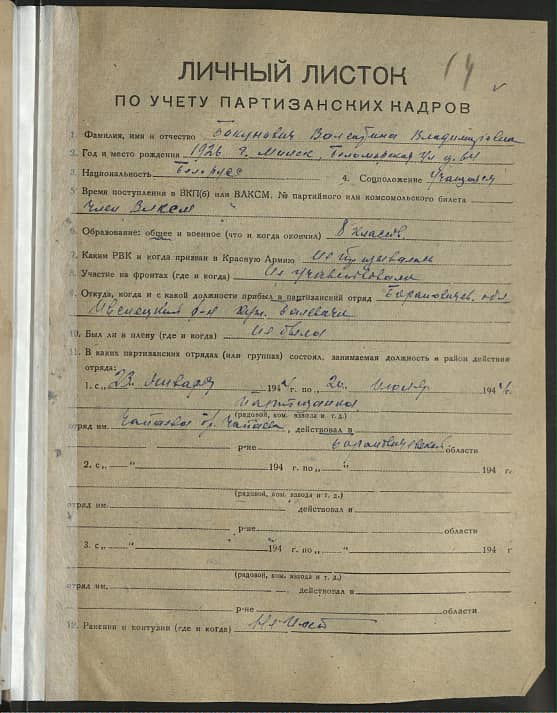 14
ЛИЧНЫЙ ЛИСТОК
ПО УЧЕТУ ПАРТИЗАНСКИХ КАДРОВ
1. Фамилия, имя и отчество Бокунович Валентина Владимировна
2. Год и место рождения 1926 г. Минск, Беломорская ул д. 64
3. Национальность Белорус 4. Соцположение Учащаяся
5. Время поступления в ВКП(б) или ВЛКСМ, № партийного или комсомольского билета
член Влксм
6. Образование: общее и военное (что и когда окончил) 8 классов
7. Каким РВК и когда призван в Красную Армию не призывалась
8. Участие на фронтах (где и когда) не участвовала
9. Откуда, когда и с какой должности прибыл в партизанский отряд Барановичск. обл
Ивенецкий р-н
10. Был ли в плену (где и когда) не была
11. В каких партизанских отрядах (или группах) состоял, занимаемая должность и район действия
отряда:
1. с „23 Января 1944 г. по „20 Июля 1944 г.
партизанка
(рядовой, ком. взвода и т. д.)
отряд им. Чапаева бр. Чапаева, действовал в
р-не Барановичской области
2. с „ “ 194 г. по „ “ 194 г.
(рядовой, ком. взвода и т. д.)
отряд им. действовал в
р-не области
3. с „ “ 194 г. по „ “ 194 г
(рядовой, ком. взвода и т. д.)
отряд им. действовал в
р-не области
12. Ранения и контузии (где и когда) Не имеет